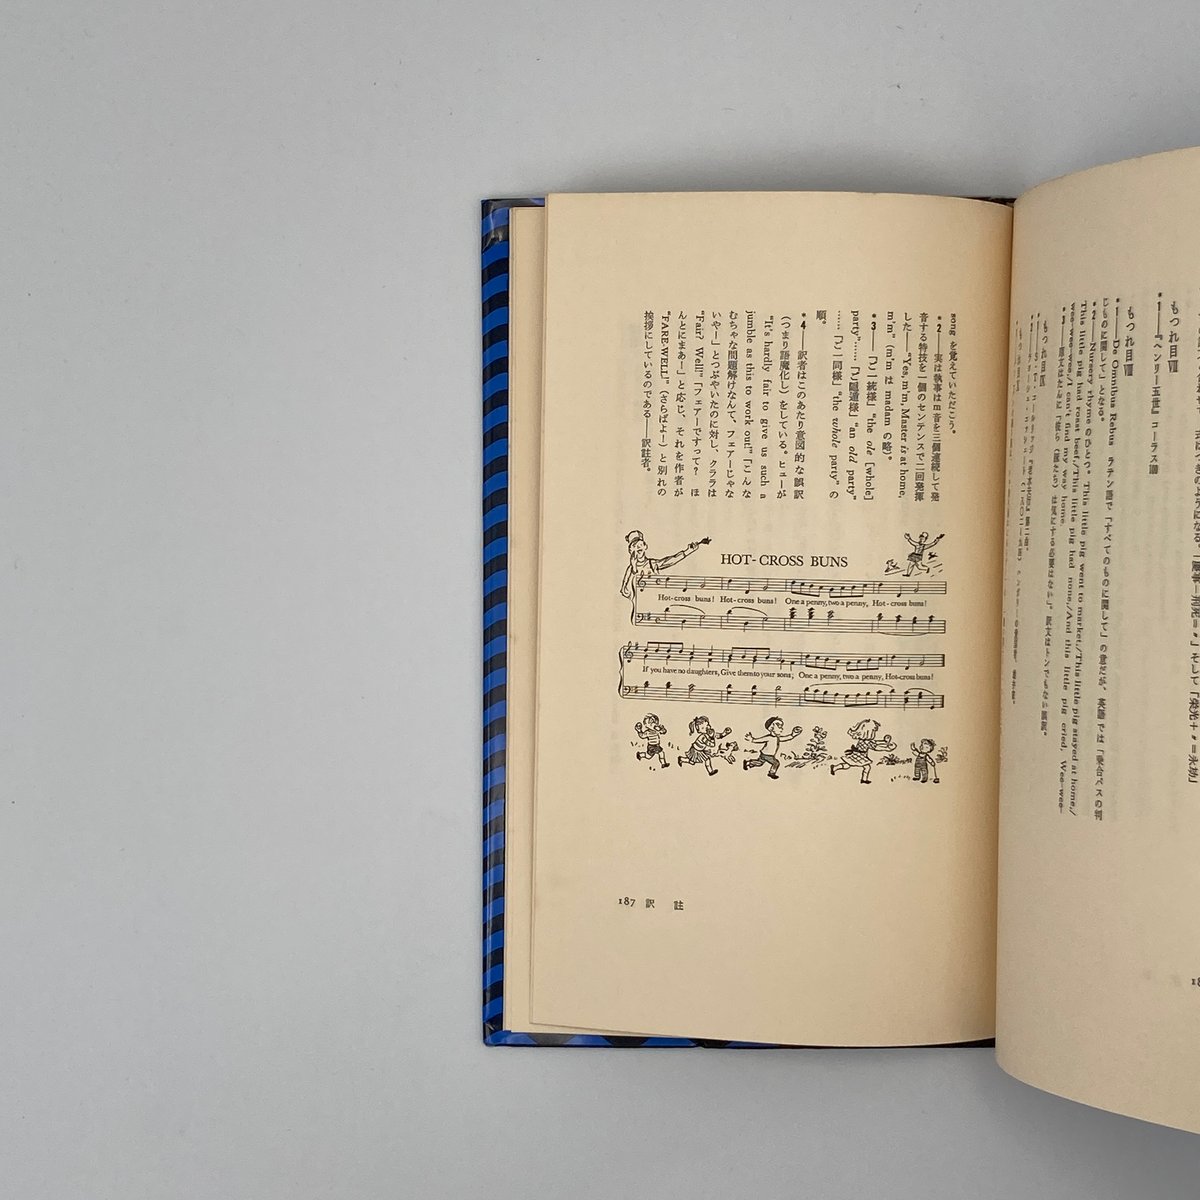 もつれ目Ⅶ
*1——『ヘンリー五世』コーラス
もつれ目Ⅷ
*1——De Omnibus Rebus ラテン語で「すべてのものに関して」の意だが、英語では「乗合バスの判
じものに関して」となる。
*2——Nursery rhyme のひとつ。This little pig went to market,/This little pig stayed at home,/
This little pig had roast beef,/This little pig had none,/And this little pig cried, Wee-wee-
wee-wee-wee,/I can't find my way home.
song を覚えていただこう。
*2——実は執事はm音を三個連続して発
音する特技を一個のセンテンスで二回発揮
した——"Yes, m'm, Master is at home,
m'm" (m'm は madam の略)。
*3——「ご一統様」"the ole [whole]
party"……「ご隠遁様」"an old party"
……「ご一同様」"the whole party" の
順。
*4——訳者はこのあたり意図的な誤訳
(つまり語魔化し)をしている。ヒューが
"It's hardly fair to give us such a
jumble as this to work out!"「こんな
むちゃな問題解けなんて、フェアーじゃな
いやー」とつぶやいたのに対し、クララは
"Fair? Well!"「フェアーですって? ほ
んとにまあー」と応じ、それを作者が
"FARE-WELL!"(さらばよー)と別れの
挨拶にしているのである——訳註者。
HOT-CROSS BUNS
Hot-cross buns! Hot-cross buns! One a penny, two a penny, Hot-cross buns!
If you have no daughters, Give them to your sons; One a penny, two a penny, Hot-cross buns!
187 訳 註